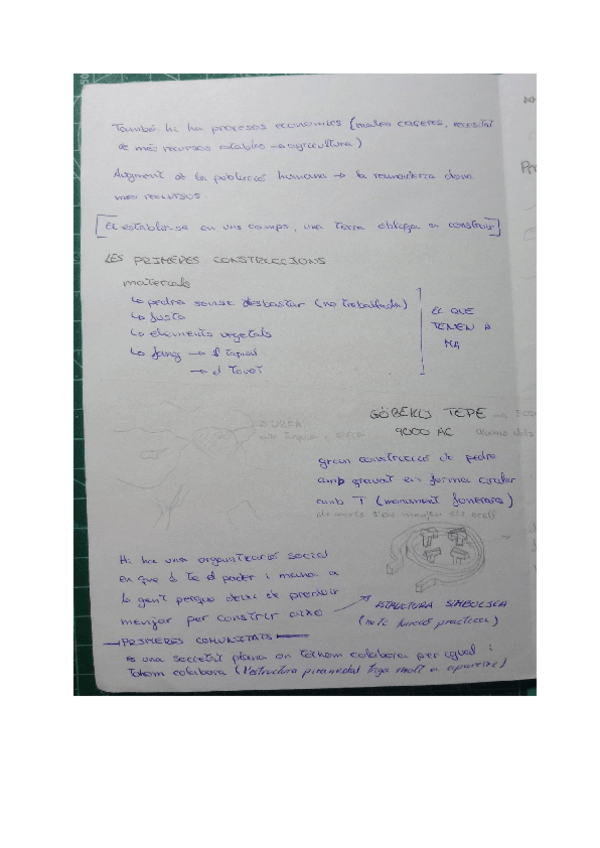 També hi ha processos economics (males caceres, necessitat
de més recursos estables → agricultura)
Augment de la població humana → la ramaderia dona
més recursos.
[El establir-se en uns camps, una terra obliga a construir]
LES PRIMERES CONSTRUCCIONS
materials
↳ pedra sense desbastar (no treballada)
↳ fusta
↳ elements vegetals
↳ fang → el tapial
→ el tovot
EL QUE
TENEN A
MA
GÖBEKLI TEPE
9000 AC
gran construcció de pedra
amb gravat en forma circular
amb T (monument funerari)
de morts s'en mengen els ocells
Hi ha una organització social
en que el te el poder i mana a
la gent perque deixi de produir
menjar per construir aixo
ESTRUCTURA SIMBOLICA
(no té funció practica)
PRIMERES COMUNITATS
es una societat plana on tothom colabora per igual i
tothom colabora (l'estructura piramidal triga molt a apareixe)